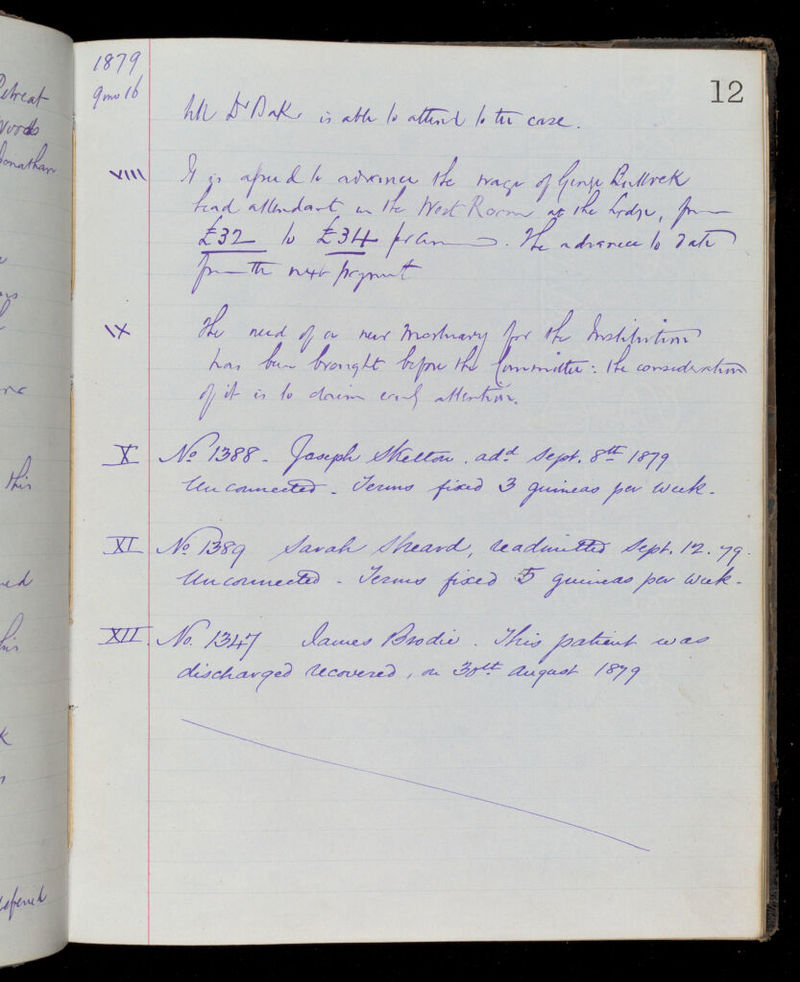 Retreat
Jonathan
this
ned
his
deferred
1879
9 mo 16
12
till Dr Baker is able to attend to the case.
VIII It is agreed to advance the wage of George Bullock
head attendant in the West Room at the Lodge, from
£32 to £34 per annum. The advance to date
from the next payment
IX The need of a new Mortuary for the Institution
has been brought before the Committee: the consideration
of it is to claim early attention.
X No 1388 - Joseph Skelton. add Sept. 8th 1879
Unconnected - Terms fixed 3 guineas per week.
XI No 1389 Sarah Sheard, readmitted Sept. 12. 79.
Unconnected - Terms fixed 5 guineas per week.
XII. No. 1347 James Brodie. This patient was
discharged recovered, on 30th August 1879